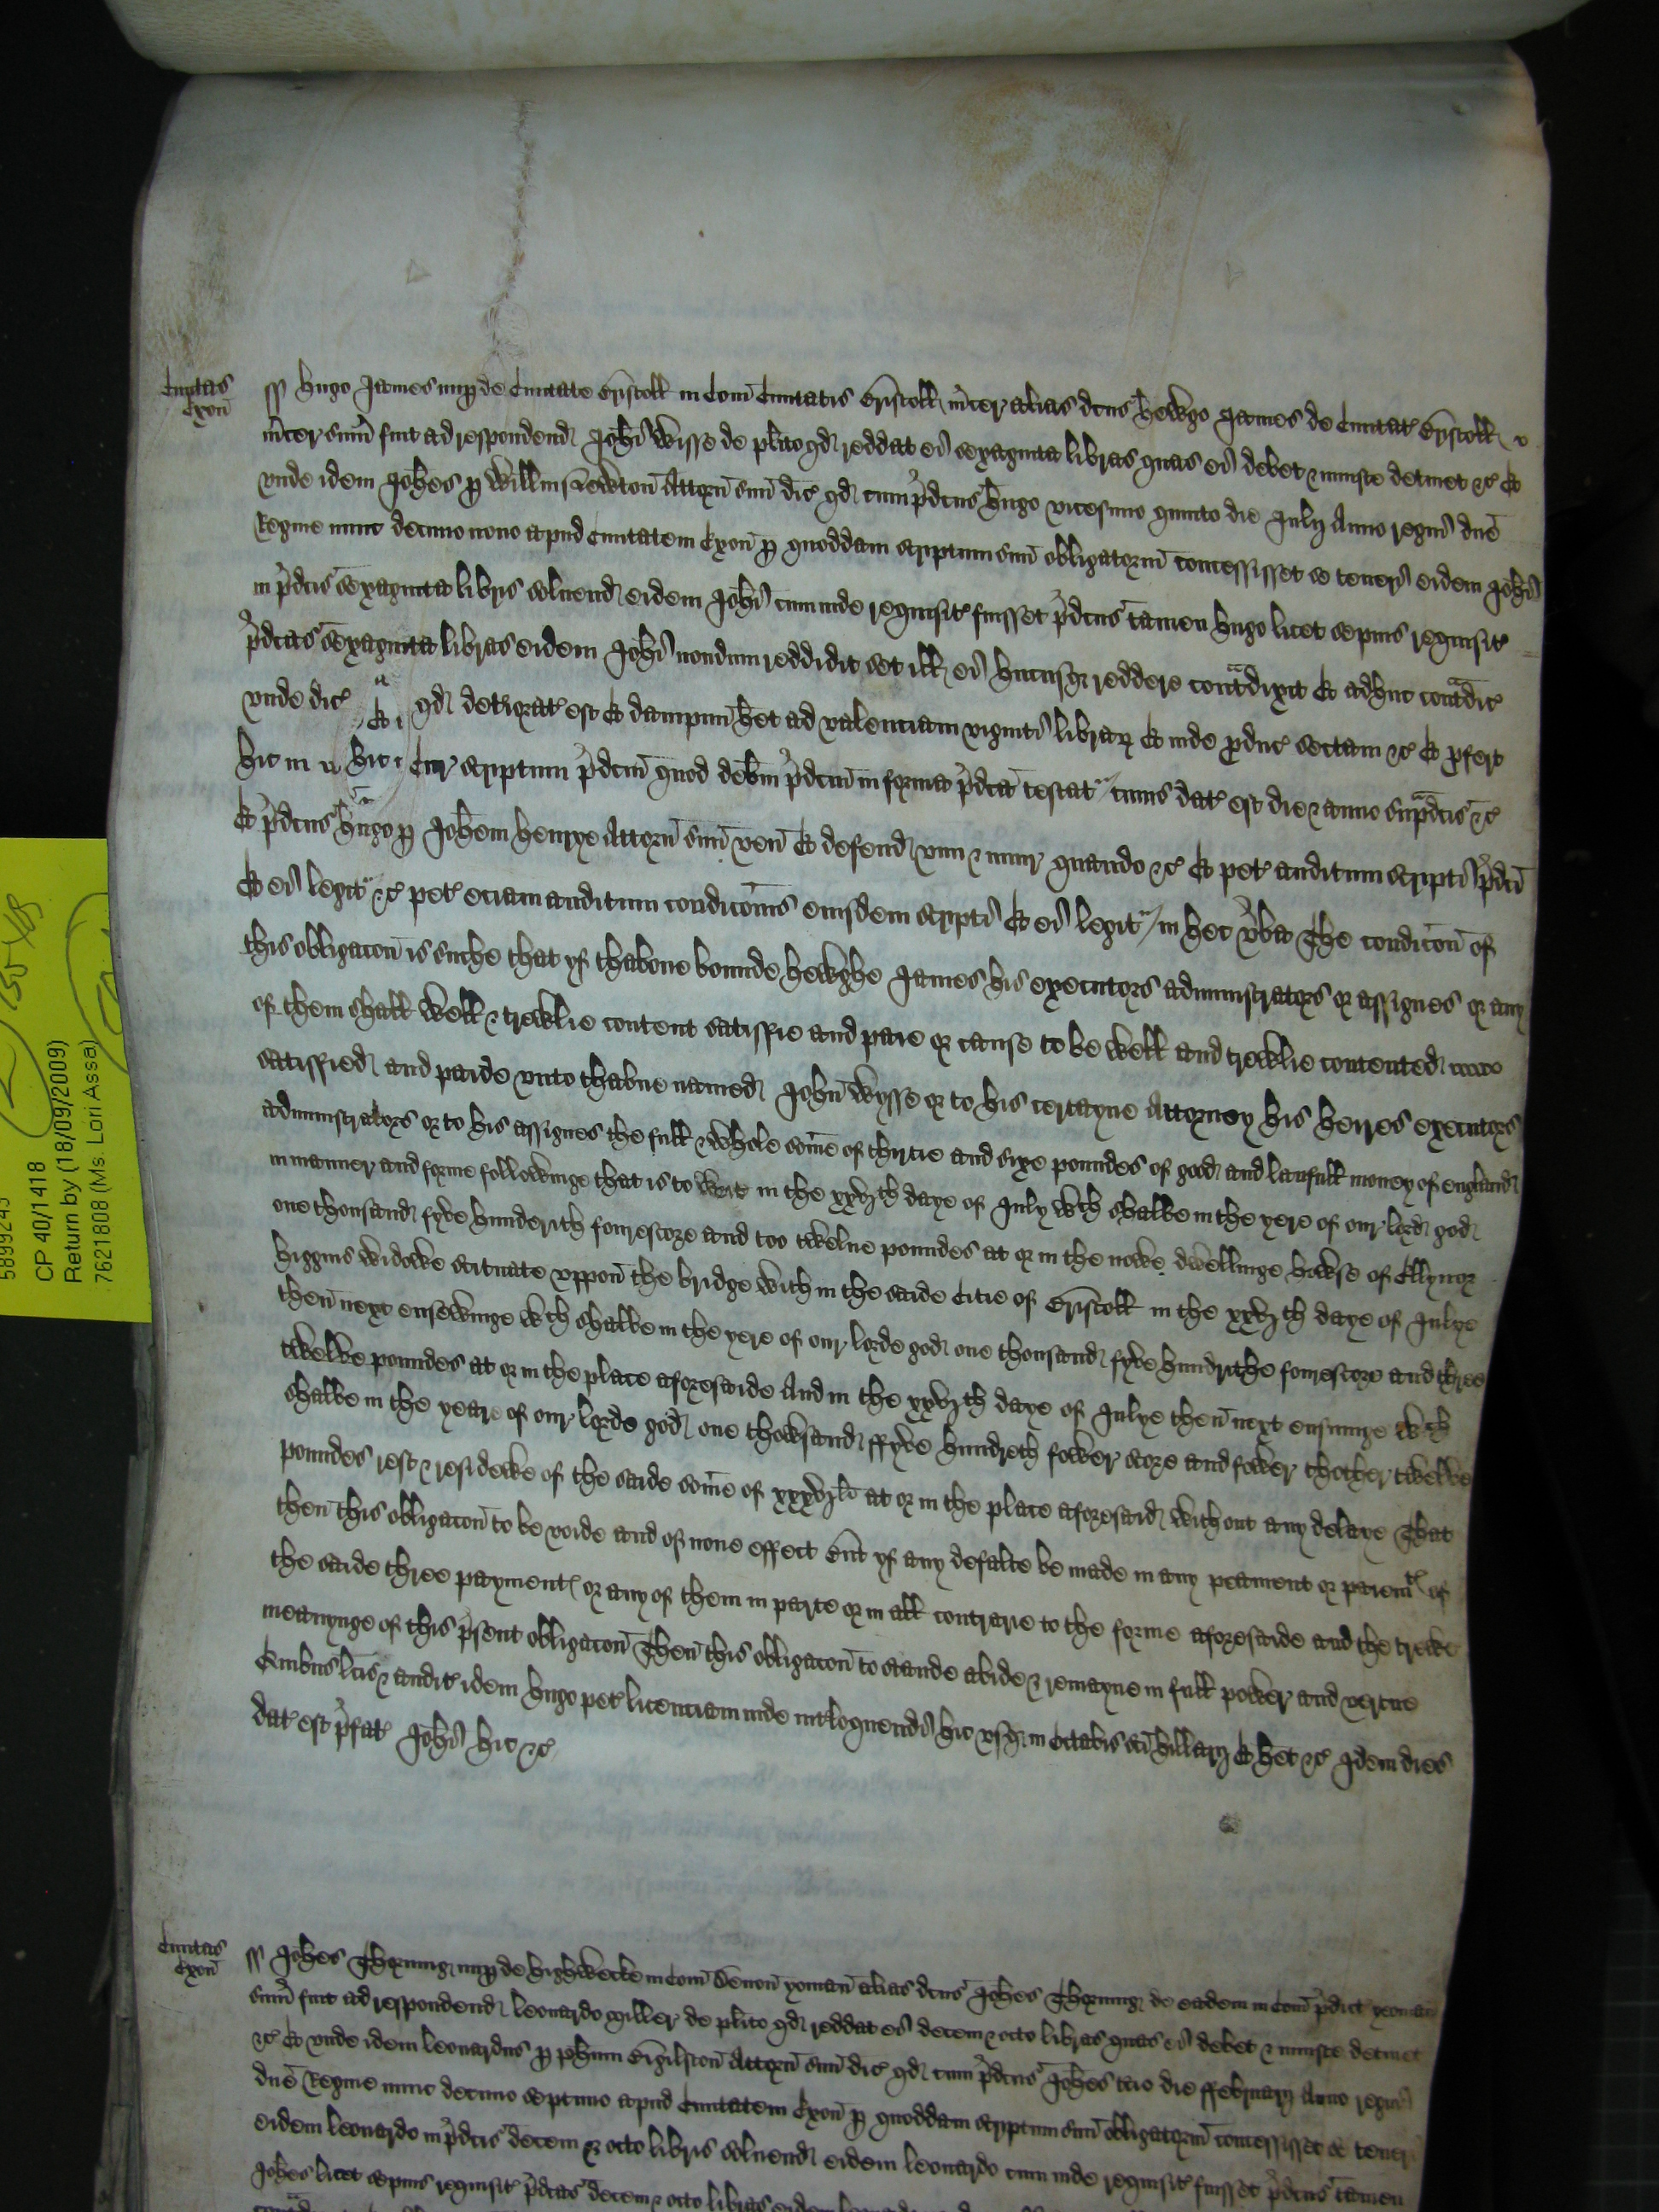 Civitas
Exon̄
ss Hugo James nup de Civitate Bristoll in Com̄ Civitatis Bristoll m̄cer alias dc̄us Hewgo James de Civitat̄ Bristoll
m̄cer sum̄ fuit ad respondend Joh̄i Wisse de plito qd reddat ei sexaginta libras quas ei debet & iniuste detinet &c Et
vnde idem Joh̄es p Willm̄ Newton Attorn̄ suū dic̄ qd cum p̄dc̄us Hugo vicesimo quinto die Julij Anno regni dn̄e
Regine nunc decimo nono apud Civitatem Exon̄ p quoddam scriptum suū obligatoriū concessisset se teneri eidem Joh̄i
in p̄dc̄is sexaginta libris soluend eidem Joh̄i cum inde requisit̄ fuisset p̄dc̄us tamen Hugo licet sepius requisit̄
p̄dc̄as sexaginta libras eidem Joh̄i nondum reddidit set ill ei hucusq reddere contradixit Et adhuc contradic̄
vnde dic̄ qd deteriorat̄ est Et dampnū h̄et ad valenciam viginti librar Et inde pduc̄ sectam &c Et pfert
hic in Cur scriptum p̄dc̄m quod debm̄ p̄dc̄m in forma p̄dc̄a testat cuius dat̄ est die & anno sup̄dc̄is &c
Et p̄dc̄us Hugo p Joh̄em Henrye Attorn̄ suū ven̄ Et defend vim & iniur quando &c Et pet̄ auditum scripti p̄dc̄i
Et ei legit &c pet̄ eciam auditum condic̄onis eiusdem scripti Et ei legit in hec v̄ba The condic̄on of
this obligac̄on is suche that yf thaboue bounde Hewghe James his executors administrators or assignes or any
of them shall well & trewlie content satisfie and paie or cause to be well and trewlie contented
satisfied and paide vnto thabue named John Wysse or to his certayne Attorney his heires executors
administrators or to his assignes the full & whole som̄e of thirtie and sixe poundes of good and laufull money of england
in manner and forme followinge that is to weit in the xxvjth daye of July wch shalbe in the yere of our lord god
one thousand fyve hunderith fourescore and too twelue poundes at or in the nowe dwellinge howse of Ellynor
Higgins widowe scituate vppon the bridge with in the saide Citie of Bristoll in the xxvjth daye of Julye
then next ensewinge wch shalbe in the yere of our lorde god one thousand fyve hundrithe fourescore and three
twelve poundes at or in the place aforesaide And in the xxvjth daye of Julye then next ensuinge wch
shalbe in the yeare of our lorde god one thowsand ffyve hundreth fower score and fower thother twelve
poundes rest & residewe of the saide som̄e of xxxvjli at or in the place aforesaid without any delaye That
then this obligac̄on to be voide and of none effect But yf any defalte be made in any peament or paiemtes of
the saide three payment or any of them in parte or in all contrarie to the forme aforesaide and the trewe
meanynge of this p̄sent obligac̄on Then this obligac̄on to stande abide & remayne in full power and vertue
Quibus lc̄is & audit̄ idem Hugo pet̄ licenciam inde intloquendi hic vsq in Octabis sc̄i Hillarij Et h̄et &c Idem dies
dat̄ est p̄fat̄ Joh̄i hic &c
Civitas
Exon̄
ss Joh̄es Thorning nup de Highwecke in Com̄ Devon̄ yoman alias dc̄us Joh̄es Thorning de eadem in Com̄ p̄dict yeoman
sum̄ fuit ad respondend Leonardo Miller de plito qd reddat ei decem & octo libras quas ei debet & iniuste detinet
&c Et vnde idem Leonardus p Phum Attorn̄ suū dic̄ qd cum p̄dc̄us Joh̄es die ffebruarij Anno regni
dn̄e Regine nunc decimo septimo apud Civitatem Exon̄ p quoddam scriptum suū obligatoriū concessisset se teneri
eidem Leonardo in p̄dc̄is decem & octo libris soluend eidem Leonardo cum inde requisit̄ fuisset p̄dc̄us tamen
Joh̄es licet sepius requisit̄ p̄dc̄as decem & octo libras eidem
CP 40/1418
Return by (18/09/2009)
7621808 (Ms. Lori Assa)